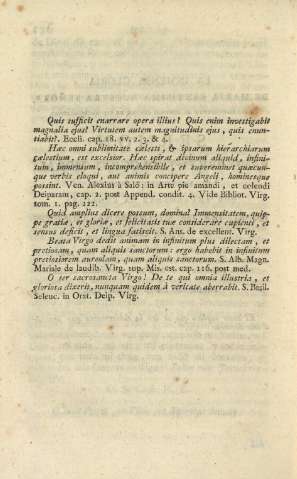 Quis sufficit enarrare opera illius? Quis enim investigabit
magnalia ejus? Virtutem autem magnitudinis ejus, quis enun-
tiabit? Eccli. cap. 18. vv. 2. 3. & 4.
Hæc omni sublimitate cælesti, & ipsarum hierarchiarum
cælestium, est excelsior. Hæc spirat divinum aliquid, infini-
tum, immensum, incomprehensibile, et supereminet quæcun-
que verbis eloqui, aut animis concipere Angeli, hominesque
possint. Ven. Alexius à Salò: in Arte piè amandi, et colendi
Deiparam, cap. 2. post Append. condit. 4. Vide Bibliot. Virg.
tom. 1. pag. 222.
Quid amplius dicere possum, domina! Immensitatem, quip-
pe gratiæ, et gloriæ, et felicitatis tuæ considerare cupienti, et
sensus deficit, et lingua fatiscit. S. Ans. de excellent. Virg.
Beata Virgo dedit animam in infinitum plus dilectam, et
pretiosam, quam aliquis sanctorum: ergo habebit in infinitum
pretiosiorem aureolam, quam aliquis sanctorum. S. Alb. Magn.
Mariale de laudib. Virg. sup. Mis. est. cap. 226. post med.
O ter sacrosancta Virgo! De te qui omnia illustria, et
gloriosa dixerit, nunquam quidem à veritate aberrabit. S. Basil.
Seleuc. in Orat. Deip. Virg.